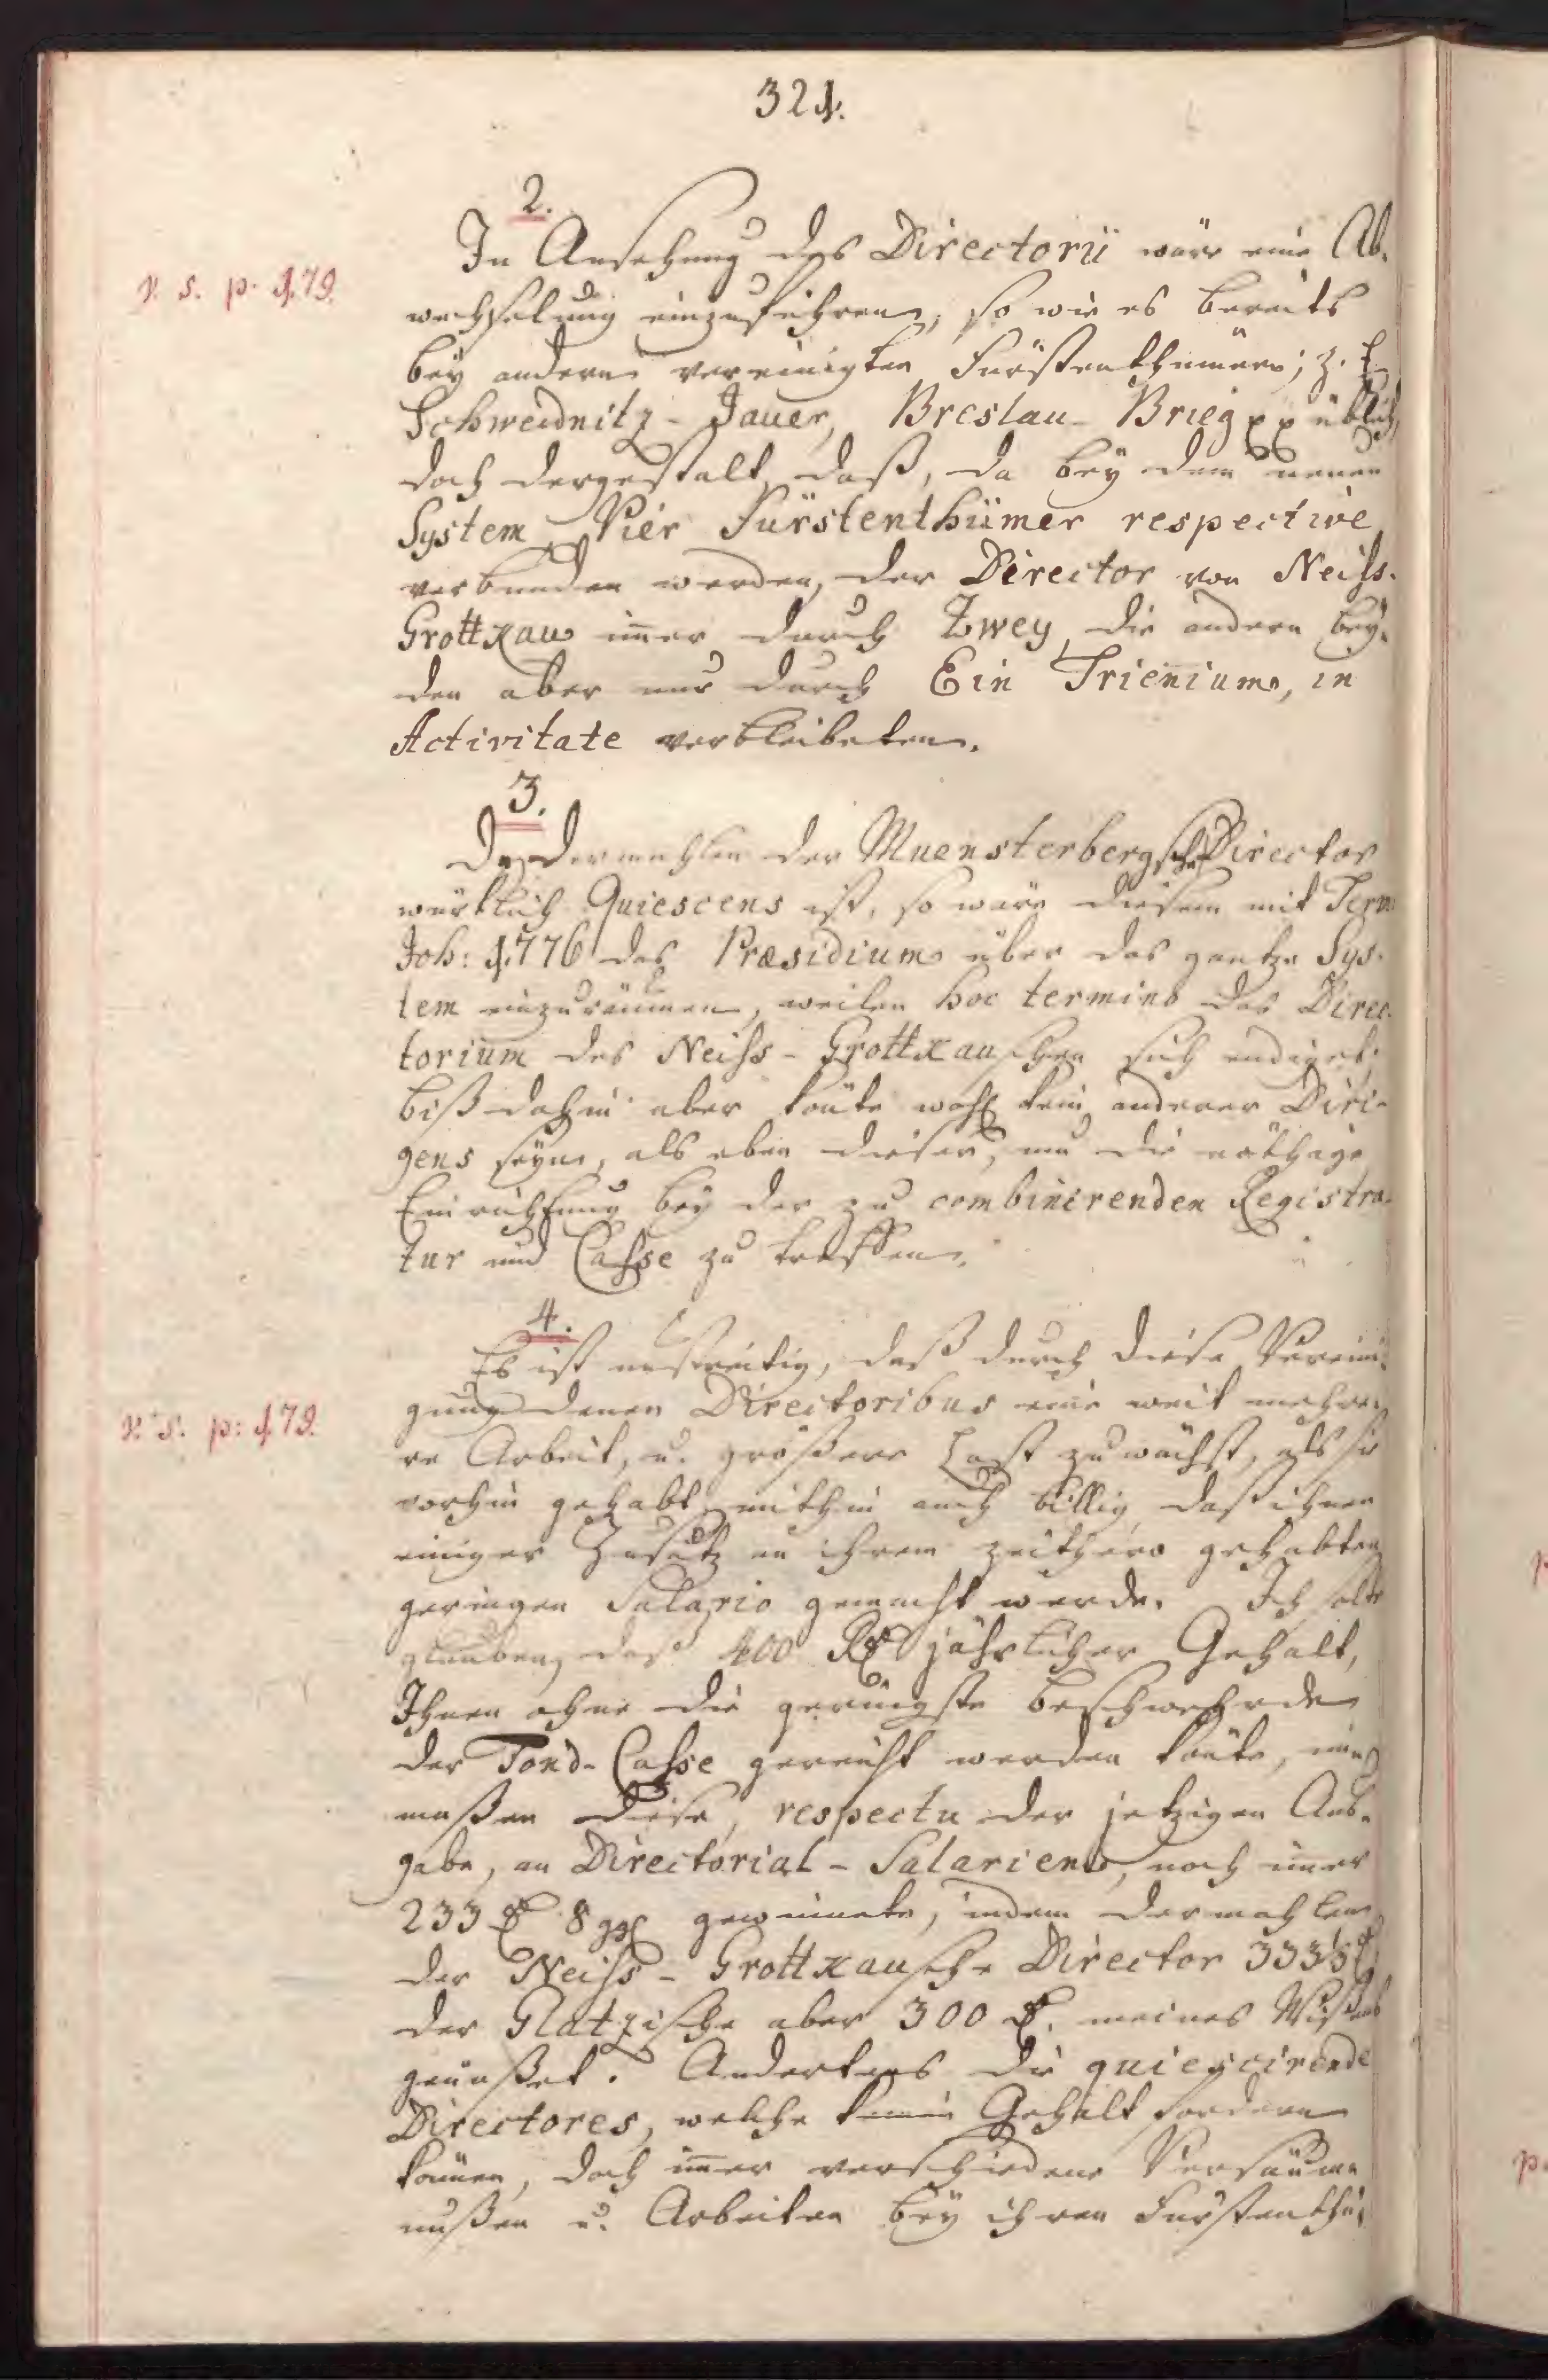 321.
2.
In Ansehung des Directorii wäre eine Ab-
v. s. p. 179.
wechselung einzuführen, so wie es bereits
bey andern vereinigten Fürstenthümern; z. E.
Schweidnitz - Jauer, Breslau - Brieg pp üblich,
doch dergestalt, daß, da bey dem neuen
System Vier Fürstenthümer respective
verbunden werden, der Director von Neiss-
Grottkau im̄er durch Zwey, die andern bey-
den aber nur durch Ein Trien̄ium, in
Activitate verbleibeten.
3.
Da dermahlen der Muensterbergsche Director
würklich Quiescens ist, so wäre diesem mit Term
Joh: 1776 das Præsidium über das gantze Sys-
tem einzuräumen, weilen hoc termino das Direc-
torium des Neiss - Grottkauschen sich endiget;
biß dahin aber kön̄te wohl kein anderer Diri-
gens seyn, als eben dieser, um die nöthige
Einrichtung bey der zu combinirenden Registra-
tur und Casse zu treffen.
4.
Es ist unstreitig, daß durch diese Vereini-
gung denen Directoribus eine weit mehre-
v. s. p: 179.
re Arbeit, u. größere Last zuwächst, als sie
vorhin gehabt, mithin auch billig, daß ihnen
einiger Zusatz an ihrem zeithero gehabten
geringen Salario gemacht werde. Ich solte
glauben, daß 400 Rt jährlicher Gehalt,
Ihnen ohne die geringste Beschwehrden
der Fond-Casse gereicht werden kön̄te, im̄-
maßen diese, respectu der jetzigen Aus-
gabe, an Directorial - Salarien, noch im̄er
233 rt 8 ggl gewin̄ete, indem dermahlen
der Neiss - Grottkausche Director 333⅓ rt
der Glatzische aber 300 rt. meines Wißens
genüßet. Andertens die quiescirende
Directores, welche keinen Gehalt fordern
kön̄en, doch im̄er verschiedene Versäum-
nußen u. Arbeiten bey ihren Fürstenthü-